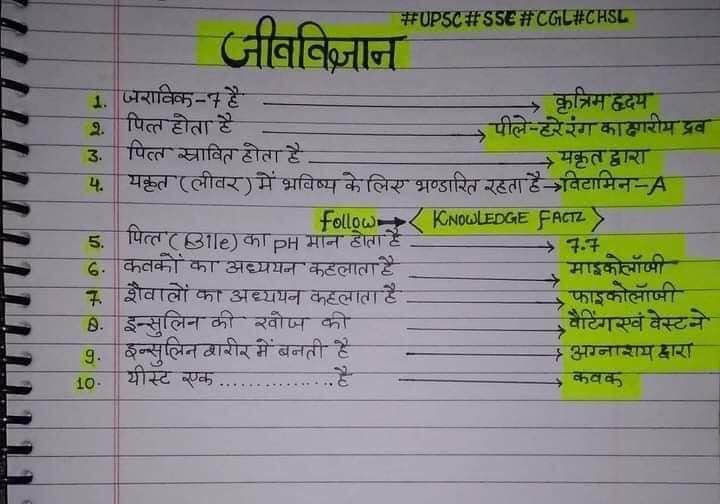 #UPSC#SSC#CGL#CHSL
जीवविज्ञान
1. जराविक-7 है → कृत्रिम हृदय
2. पित्त होता है → पीले-हरे रंग का क्षारीय द्रव
3. पित्त स्रावित होता है → यकृत द्वारा
4. यकृत (लीवर) में भविष्य के लिए भण्डारित रहता है → विटामिन-A
Follow → KNOWLEDGE FACTZ
5. पित्त (Bile) का pH मान होता है → 7.7
6. कवकों का अध्ययन कहलाता है → माइकोलॉजी
7. शैवालों का अध्ययन कहलाता है → फाइकोलॉजी
8. इन्सुलिन की खोज की → वैटिंग एवं वेस्ट ने
9. इन्सुलिन शरीर में बनती है → अग्नाशय द्वारा
10. यीस्ट एक ............... है → कवक